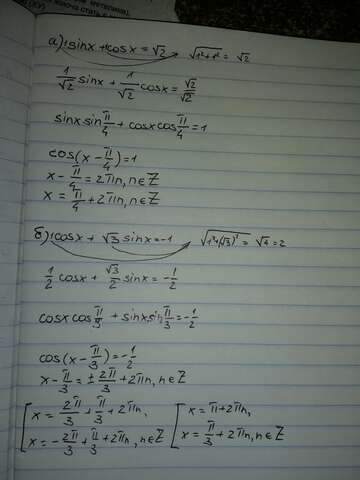 а) 1sinx + 1cosx = √2   √(1²+1²) = √2
1/√2 sinx + 1/√2 cosx = √2/√2
sinx sin π/4 + cosx cos π/4 = 1
cos(x - π/4) = 1
x - π/4 = 2πn, n∈Z
x = π/4 + 2πn, n∈Z
б) 1cosx + √3 sinx = -1   √(1²+(√3)²) = √4 = 2
1/2 cosx + √3/2 sinx = -1/2
cosx cos π/3 + sinx sin π/3 = -1/2
cos(x - π/3) = -1/2
x - π/3 = ± 2π/3 + 2πn, n∈Z
[ x = 2π/3 + π/3 + 2πn,   [ x = π + 2πn,
x = -2π/3 + π/3 + 2πn, n∈Z   x = π/3 + 2πn, n∈Z